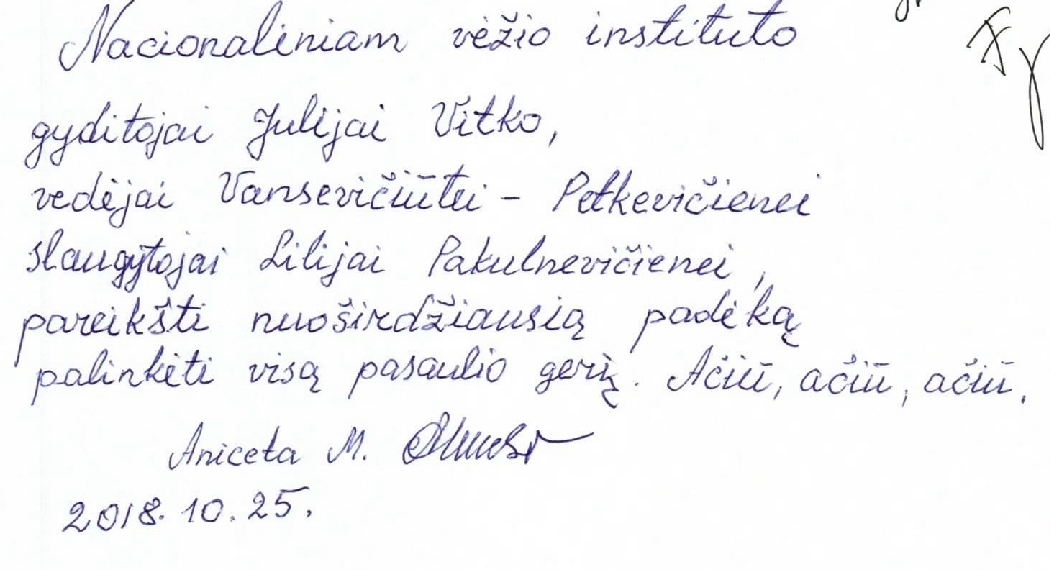 Nacionaliniam vėžio instituto
gyditojai Julijai Vitko,
vedėjai Vansevičiūtei - Petkevičienei
slaugytojai Lilijai Pakulnevičienei,
pareikšti nuoširdžiausią padėką
palinkėti visą pasaulio gerių. Ačiū, ačiū, ačiū.
Aniceta M.
2018.10.25.